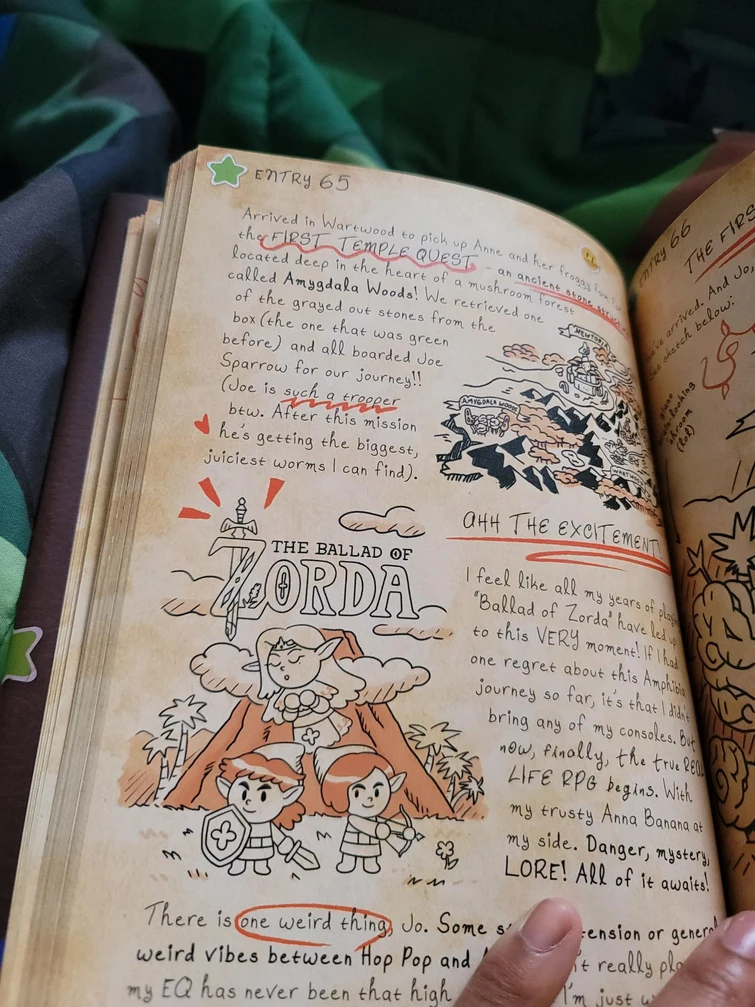 ENTRY 65
Arrived in Wartwood to pick up Anne and her froggy
the FIRST TEMPLE QUEST - an ancient stone
located deep in the heart of a mushroom forest
called Amygdala Woods! We retrieved one
of the grayed out stones from the
box (the one that was green
before) and all boarded Joe
Sparrow for our journey!!
(Joe is such a trooper
btw. After this mission
he's getting the biggest,
juiciest worms I can find).
NEWTOPIA
AMYGDALA WOODS
WARTWOOD
THE BALLAD OF
ZORDA
AHH THE EXCITEMENT!
I feel like all my years of
"Ballad of Zorda" have led
to this VERY moment! If I had
one regret about this Amphibia
journey so far, it's that I didn't
bring any of my consoles. But
now, finally, the true REAL
LIFE RPG begins. With
my trusty Anna Banana at
my side. Danger, mystery,
LORE! All of it awaits!
There is one weird thing, Jo. Some tension or general
weird vibes between Hop Pop and really
my EQ has never been that high I'm just
ENTRY 66
THE
arrived. And
sketch below:
looking
(lol)